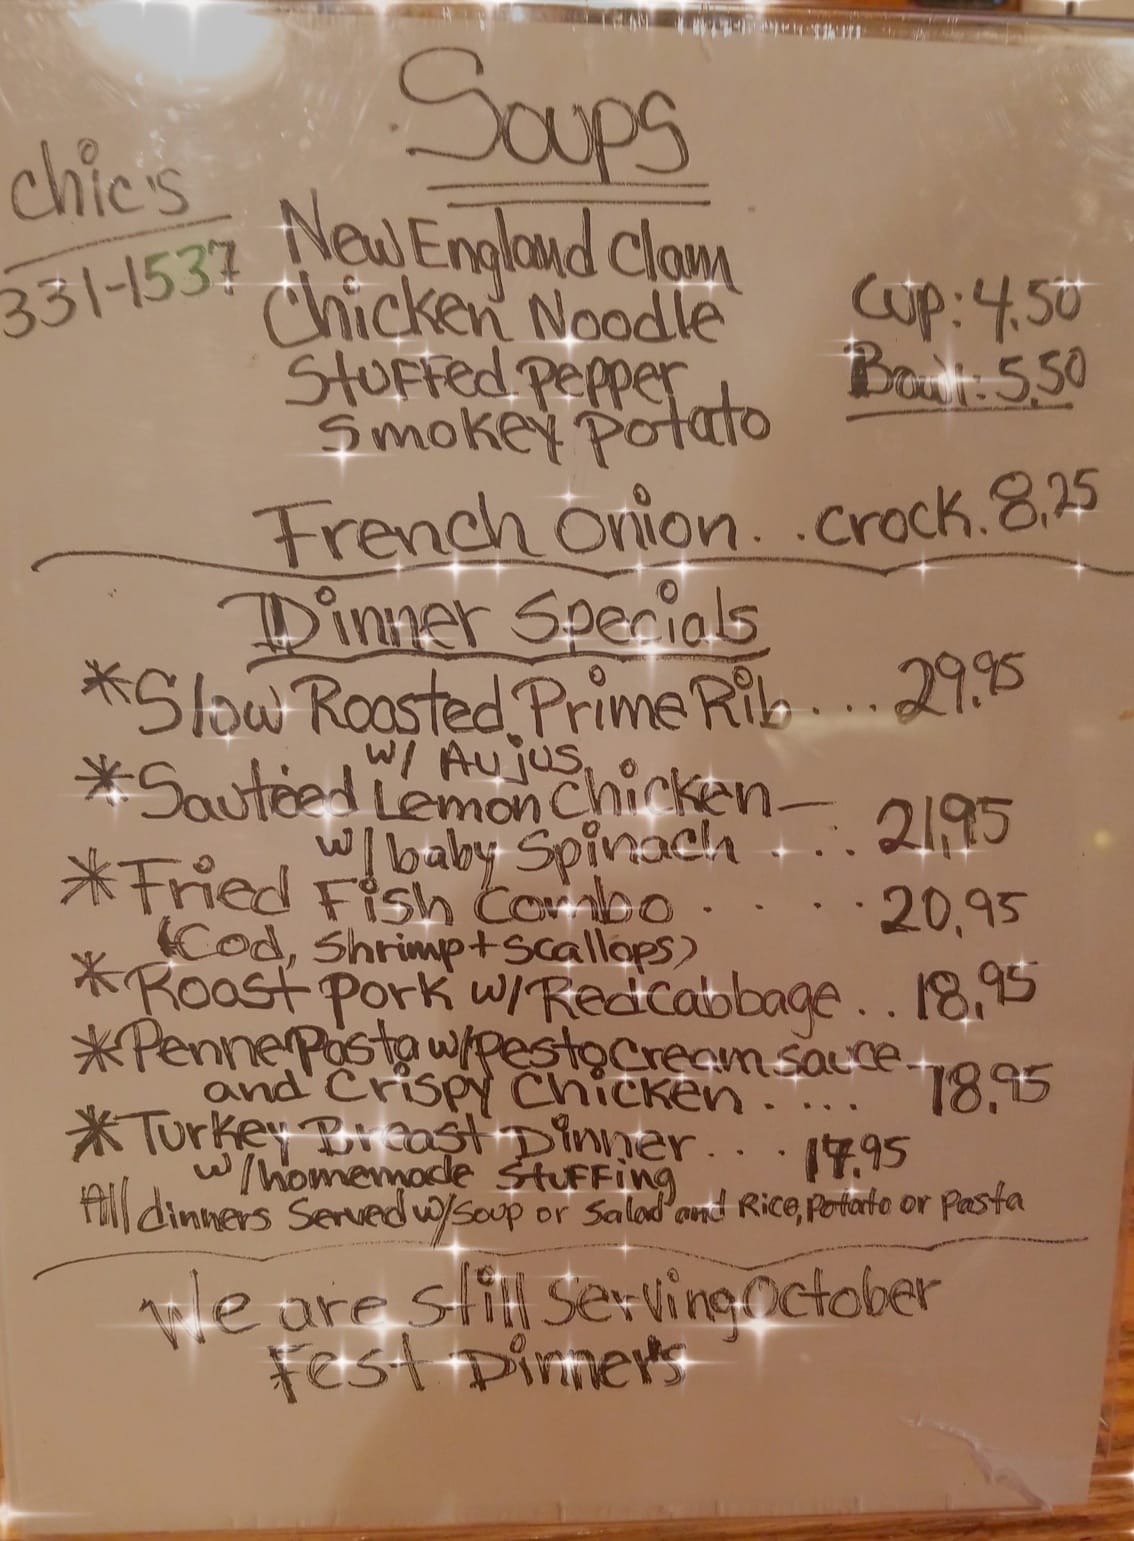 Soups
chic's
331-1537
New England Clam
Chicken Noodle
Cup: 4.50
Stuffed pepper
Bowl: 5.50
Smokey potato
French Onion. . .crock. 8.25
Dinner Specials
*Slow Roasted Prime Rib. . . . 29.95
w/ Aujus
*Sautéed Lemon Chicken —
w/ baby Spinach . . . . 21.95
*Fried Fish Combo . . . . . 20.95
(Cod, Shrimp + Scallops)
*Roast pork w/ Red Cabbage . . 18.95
*Penne Pasta w/ pesto Cream Sauce
and Crispy Chicken . . . . 18.95
*Turkey Breast Dinner . . . . 17.95
w/ homemade Stuffing
All dinners Served w/ Soup or Salad and Rice, Potato or Pasta
We are Still Serving October
Fest Dinners